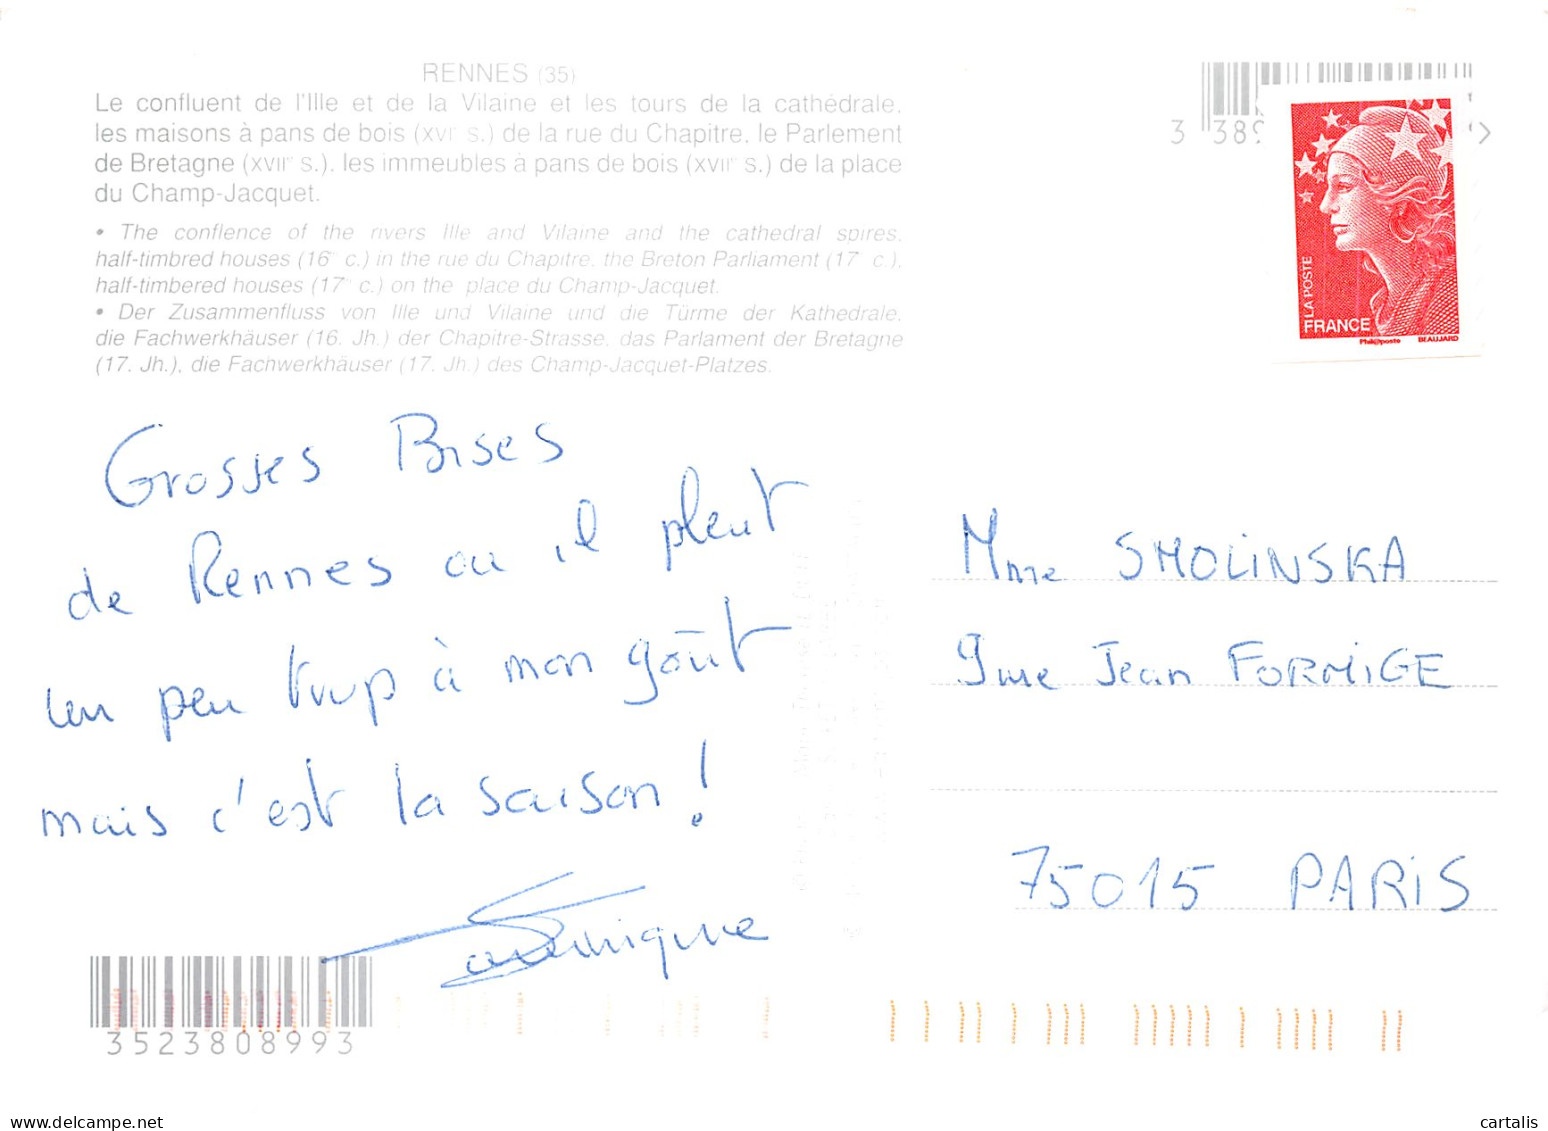 RENNES (35)
Le confluent de l'Ille et de la Vilaine et les tours de la cathédrale,
les maisons à pans de bois (XVIᵉ s.) de la rue du Chapitre, le Parlement
de Bretagne (XVIIᵉ s.), les immeubles à pans de bois (XVIIᵉ s.) de la place
du Champ-Jacquet.
• The conflence of the rivers Ille and Vilaine and the cathedral spires,
half-timbred houses (16ᵗʰ c.) in the rue du Chapitre, the Breton Parliament (17ᵗʰ c.),
half-timbered houses (17ᵗʰ c.) on the place du Champ-Jacquet.
• Der Zusammenfluss von Ille und Vilaine und die Türme der Kathedrale,
die Fachwerkhäuser (16. Jh.) der Chapitre-Strasse, das Parlament der Bretagne
(17. Jh.), die Fachwerkhäuser (17. Jh.) des Champ-Jacquet-Platzes.
3 389 >
LA POSTE
FRANCE
Phil@poste BEAUJARD
Grosses Bises
de Rennes ou il pleut
un peu trop à mon goût
mais c'est la saison !
Dominique
Mme SMOLINSKA
9 rue Jean FORMIGE
75015 PARIS
3523808993
cartalis
www.delcampe.net